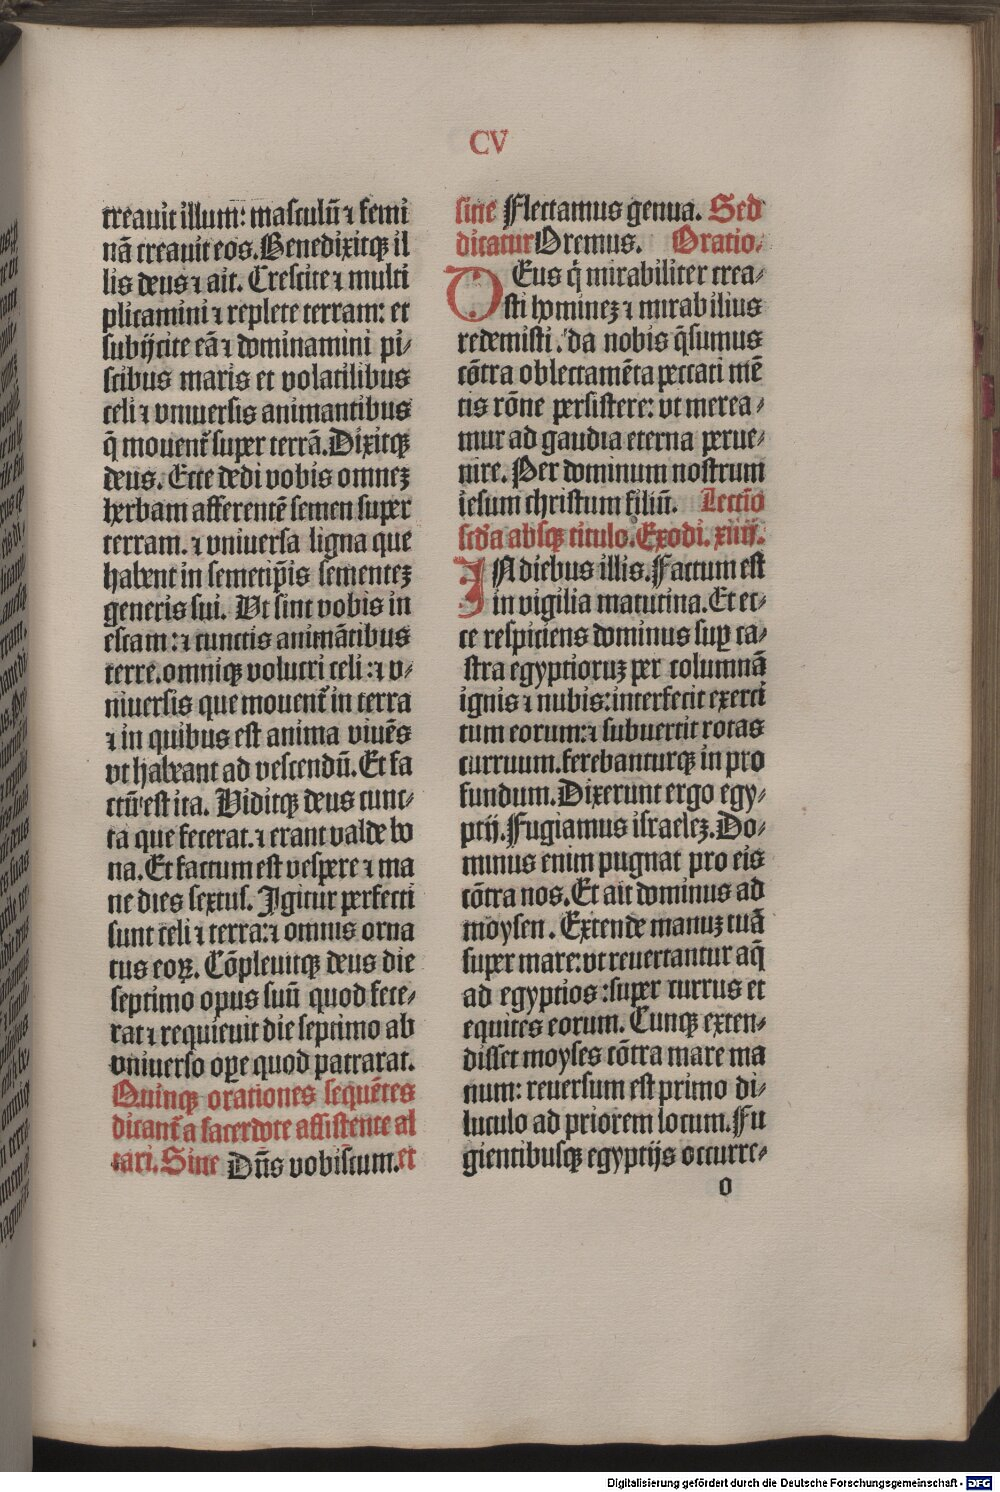 CV
creauit illum: masculū ⁊ femi
nā creauit eos. Benedixitqꝫ il
lis deus ⁊ ait. Crescite ⁊ multi
plicamini ⁊ replete terram: et
subijcite eā ⁊ dominamini pi⸗
scibus maris et volatilibus
celi ⁊ vniuersis animantibus
q̄ mouent᷑ super terrā. Dixitqꝫ
deus. Ecce dedi vobis omneꝫ
herbam afferentē semen super
terram. ⁊ vniuersa ligna que
habent in semetip̄is sementeꝫ
generis sui. Vt sint vobis in
escam: ⁊ cunctis animātibus
terre. omniqꝫ volucri celi: ⁊ v⸗
niuersis que mouent᷑ in terra
⁊ in quibus est anima viuēs
vt habeant ad vescendū. Et fa
ctū est ita. Viditqꝫ deus cunc⸗
ta que fecerat. ⁊ erant valde bo
na. Et factum est vespere ⁊ ma
ne dies sextus. Igitur perfecti
sunt celi ⁊ terra: ⁊ omnis orna
tus eoꝝ. Cōpleuitqꝫ deus die
septimo opus suū quod fece⸗
rat ⁊ requieuit die septimo ab
vniuerso oꝑe quod patrarat.
Quinqꝫ orationes sequētes
dicant᷑ a sacerdote assistente al
tari. Sine Dn̄s vobiscum. et
sine Flectamus genua. Sed
dicatur Oremus. Oratio.
DEus q̄ mirabiliter crea⸗
sti homineꝫ ⁊ mirabilius
redemisti. da nobis q̄sumus
cōtra oblectamēta peccati mē
tis rōne persistere: vt merea⸗
mur ad gaudia eterna perue⸗
nire. Per dominum nostrum
iesum christum filiū. Lectio
scd̄a absqꝫ titulo. Exodi. xiiij.
IN diebus illis. Factum est
in vigilia matutina. Et ec⸗
ce respiciens dominus suꝑ ca⸗
stra egyptioruꝫ per columnā
ignis ⁊ nubis: interfecit exerci
tum eorum: ⁊ subuertit rotas
curruum. ferebanturqꝫ in pro
fundum. Dixerunt ergo egy⸗
ptij. Fugiamus israeleꝫ. Do⸗
minus enim pugnat pro eis
cōtra nos. Et ait dominus ad
moysen. Extende manuꝫ tuā
super mare: vt reuertantur aq̄
ad egyptios: super currus et
equites eorum. Cunqꝫ exten⸗
disset moyses cōtra mare ma
num: reuersum est primo di⸗
luculo ad priorem locum. Fu
gientibusqꝫ egyptijs occurre⸗
o
Digitalisierung gefördert durch die Deutsche Forschungsgemeinschaft - DFG